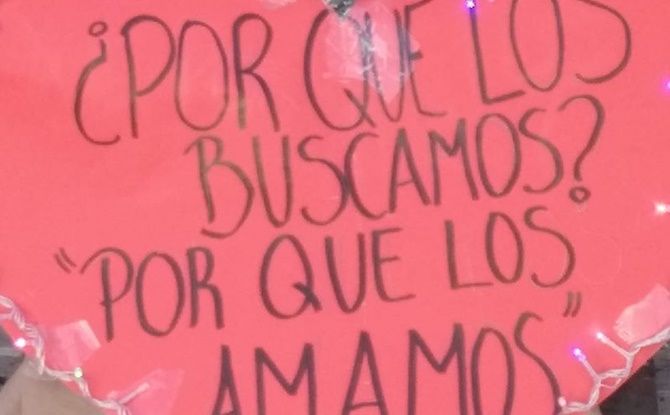 ¿POR QUE LOS
BUSCAMOS?
"POR QUE LOS
AMAMOS"